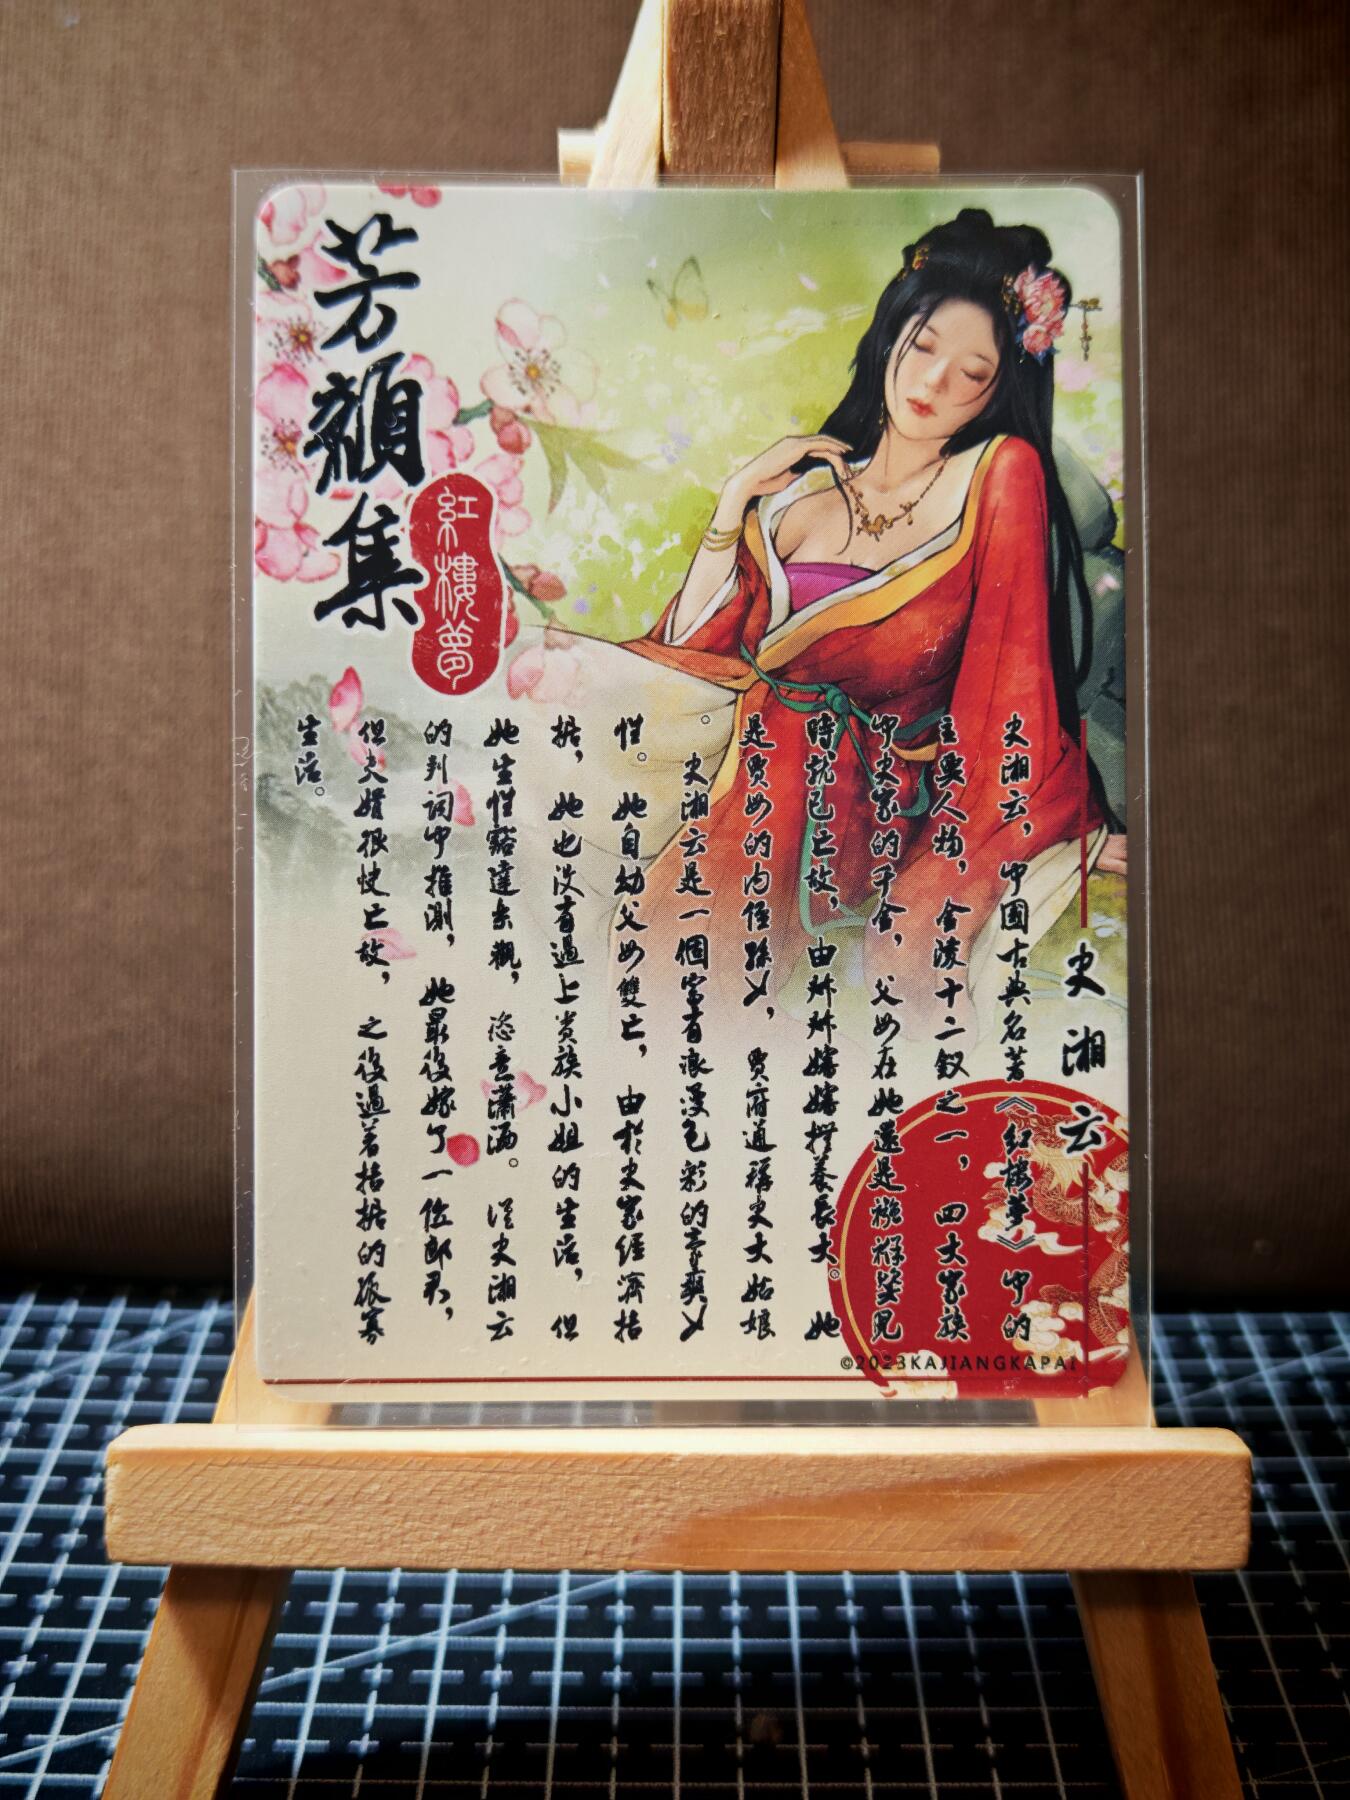 芳顏集
紅樓夢
史湘云
史湘云，中國古典名著《紅樓夢》中的
主要人物，金陵十二釵之一，四大家族
中史家的千金，父母在她還是襁褓嬰兒
時就已亡故，由叔叔嬸嬸撫養長大。她
是賈母的內侄孫女，賈府通稱史大姑娘
。史湘云是一個富有浪漫色彩的豪爽女
性。她自幼父母雙亡，由於史家經濟拮
据，她也沒有過上貴族小姐的生活，但
她生性豁達樂觀，恣意瀟洒。從史湘云
的判詞中推測，她最後嫁了一位郎君，
但夫婿很快亡故，之後過著拮据的孤寡
生活。
©2023KAJIANGKAPAI